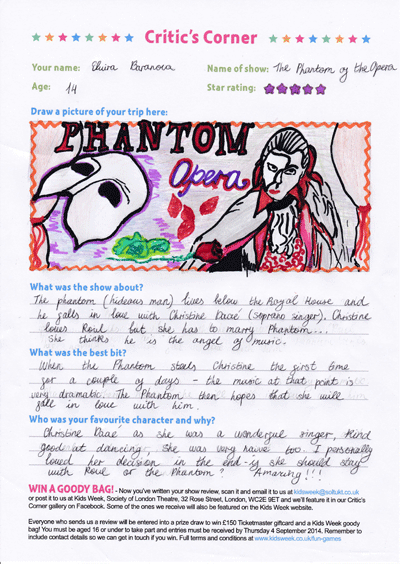 Critic's Corner
Your name: Elvira Baranova Name of show: The Phantom of the Opera
Age: 14 Star rating:
Draw a picture of your trip here:
PHANTOM
Opera
What was the show about?
The phantom (hideous man) lives below the Royal House and
he falls in love with Christine Daaé (soprano singer). Christine
loves Roul but she has to marry Phantom...
She thinks he is the angel of music.
What was the best bit?
When the Phantom steals Christine the first time
for a couple of days - the music at that point is
very dramatic. The Phantom then hopes that she will
fall in love with him.
Who was your favourite character and why?
Christine Daaé as she was a wonderful singer, kind
good at dancing, she was very naive too. I personally
loved her decision in the end - if she should stay
with Roul or the Phantom? Amazing!!!
WIN A GOODY BAG! - Now you've written your show review, scan it and email it to us at kidsweek@soltukt.co.uk
or post it to us at Kids Week, Society of London Theatre, 32 Rose Street, London, WC2E 9ET and we'll feature it in our Critic's
Corner gallery on Facebook. Some of the ones we receive will also be featured on the Kids Week website.
Everyone who sends us a review will be entered into a prize draw to win £150 Ticketmaster giftcard and a Kids Week goody
bag! You must be aged 16 or under to take part and entries must be received by Thursday 4 September 2014. Remember to
include contact details so we can get in touch if you win. Full terms and conditions at www.kidsweek.co.uk/fun-games